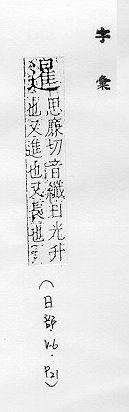 字彙
暹思廉切音纖日光升
也又進也又長也
(日部 V.6 P.21)